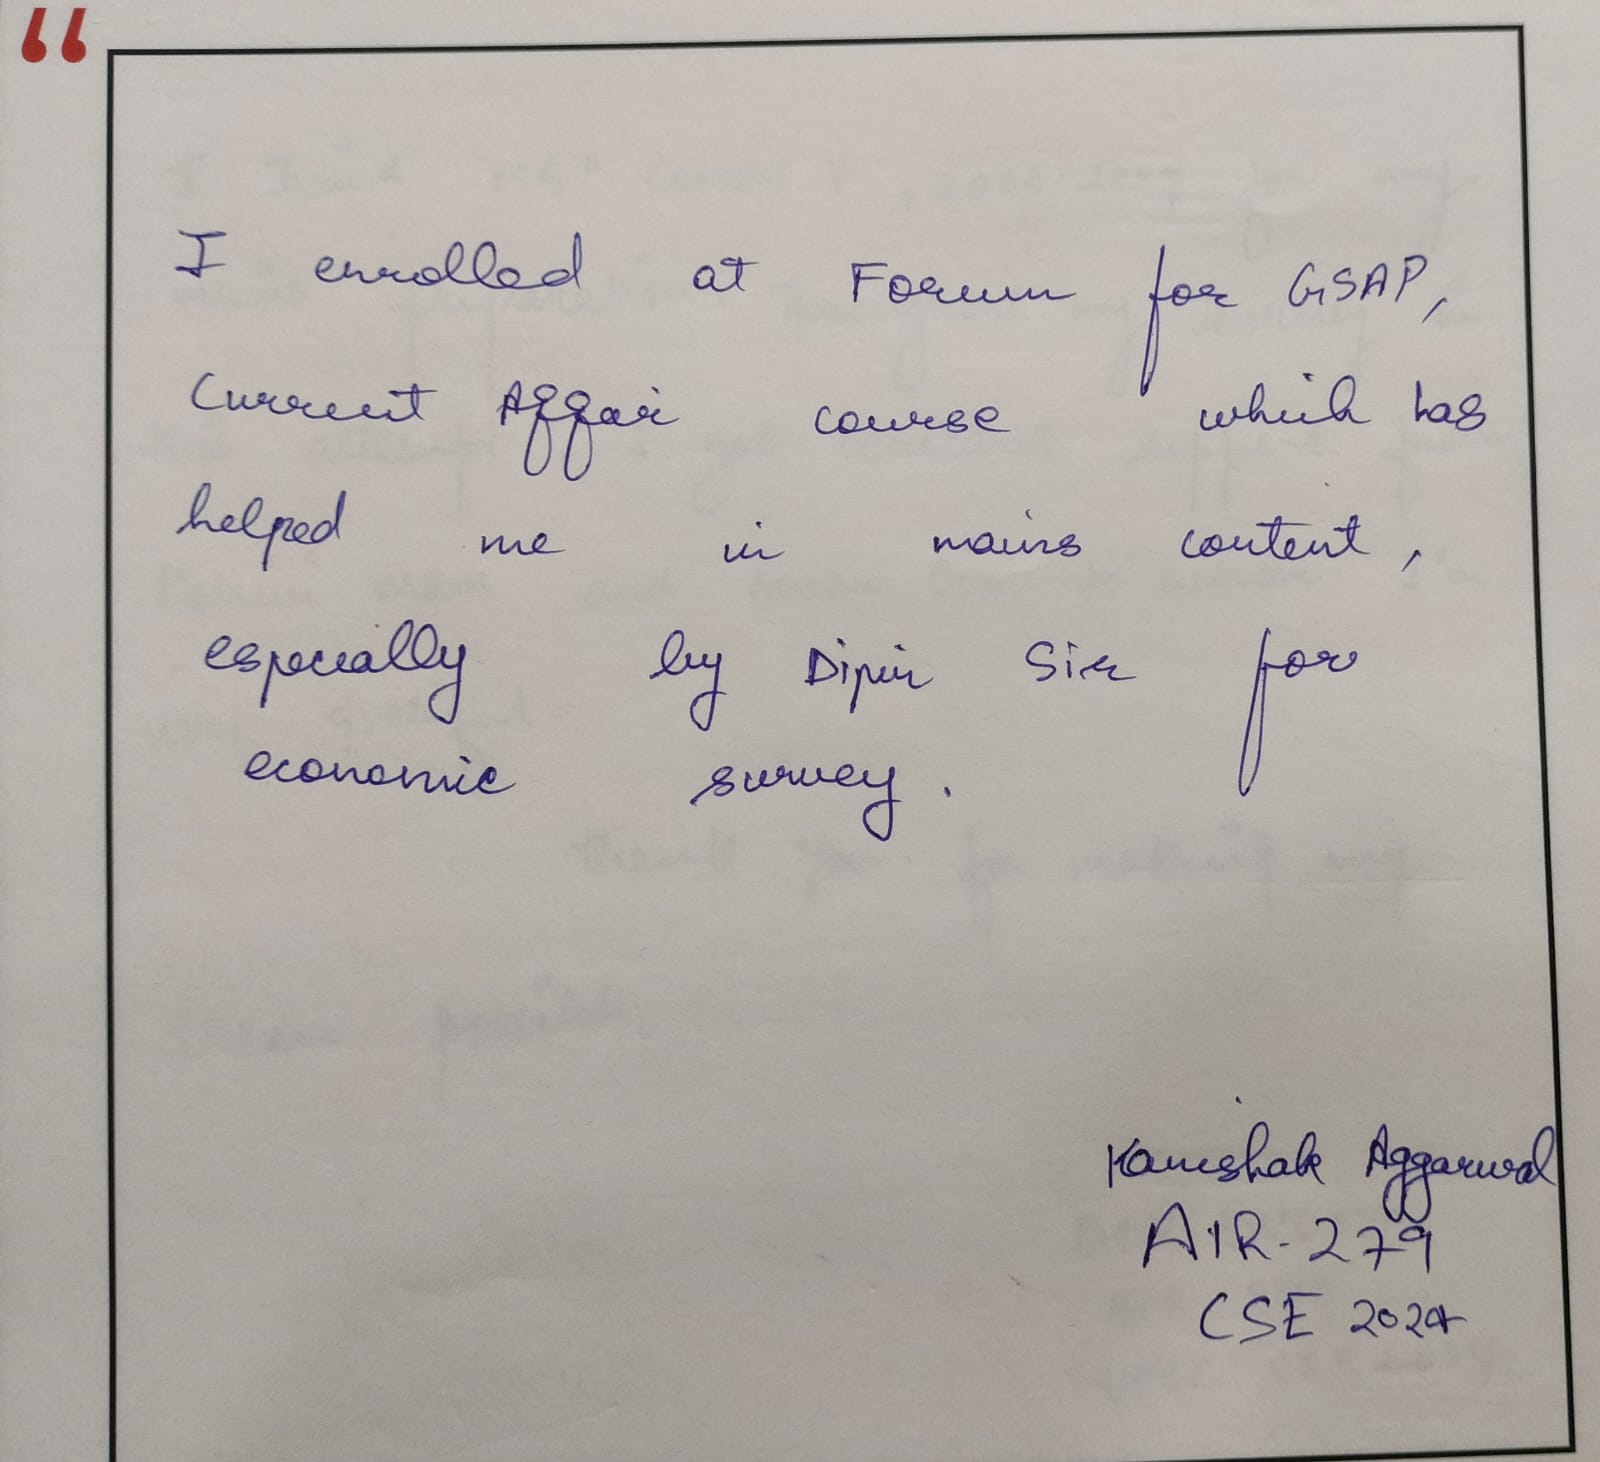 “
I enrolled at Forum for GSAP,
Current Affair course which has
helped me in mains content,
especially by Dipin Sir for
economic survey.
Kanishak Aggarwal
AIR-279
CSE 2024